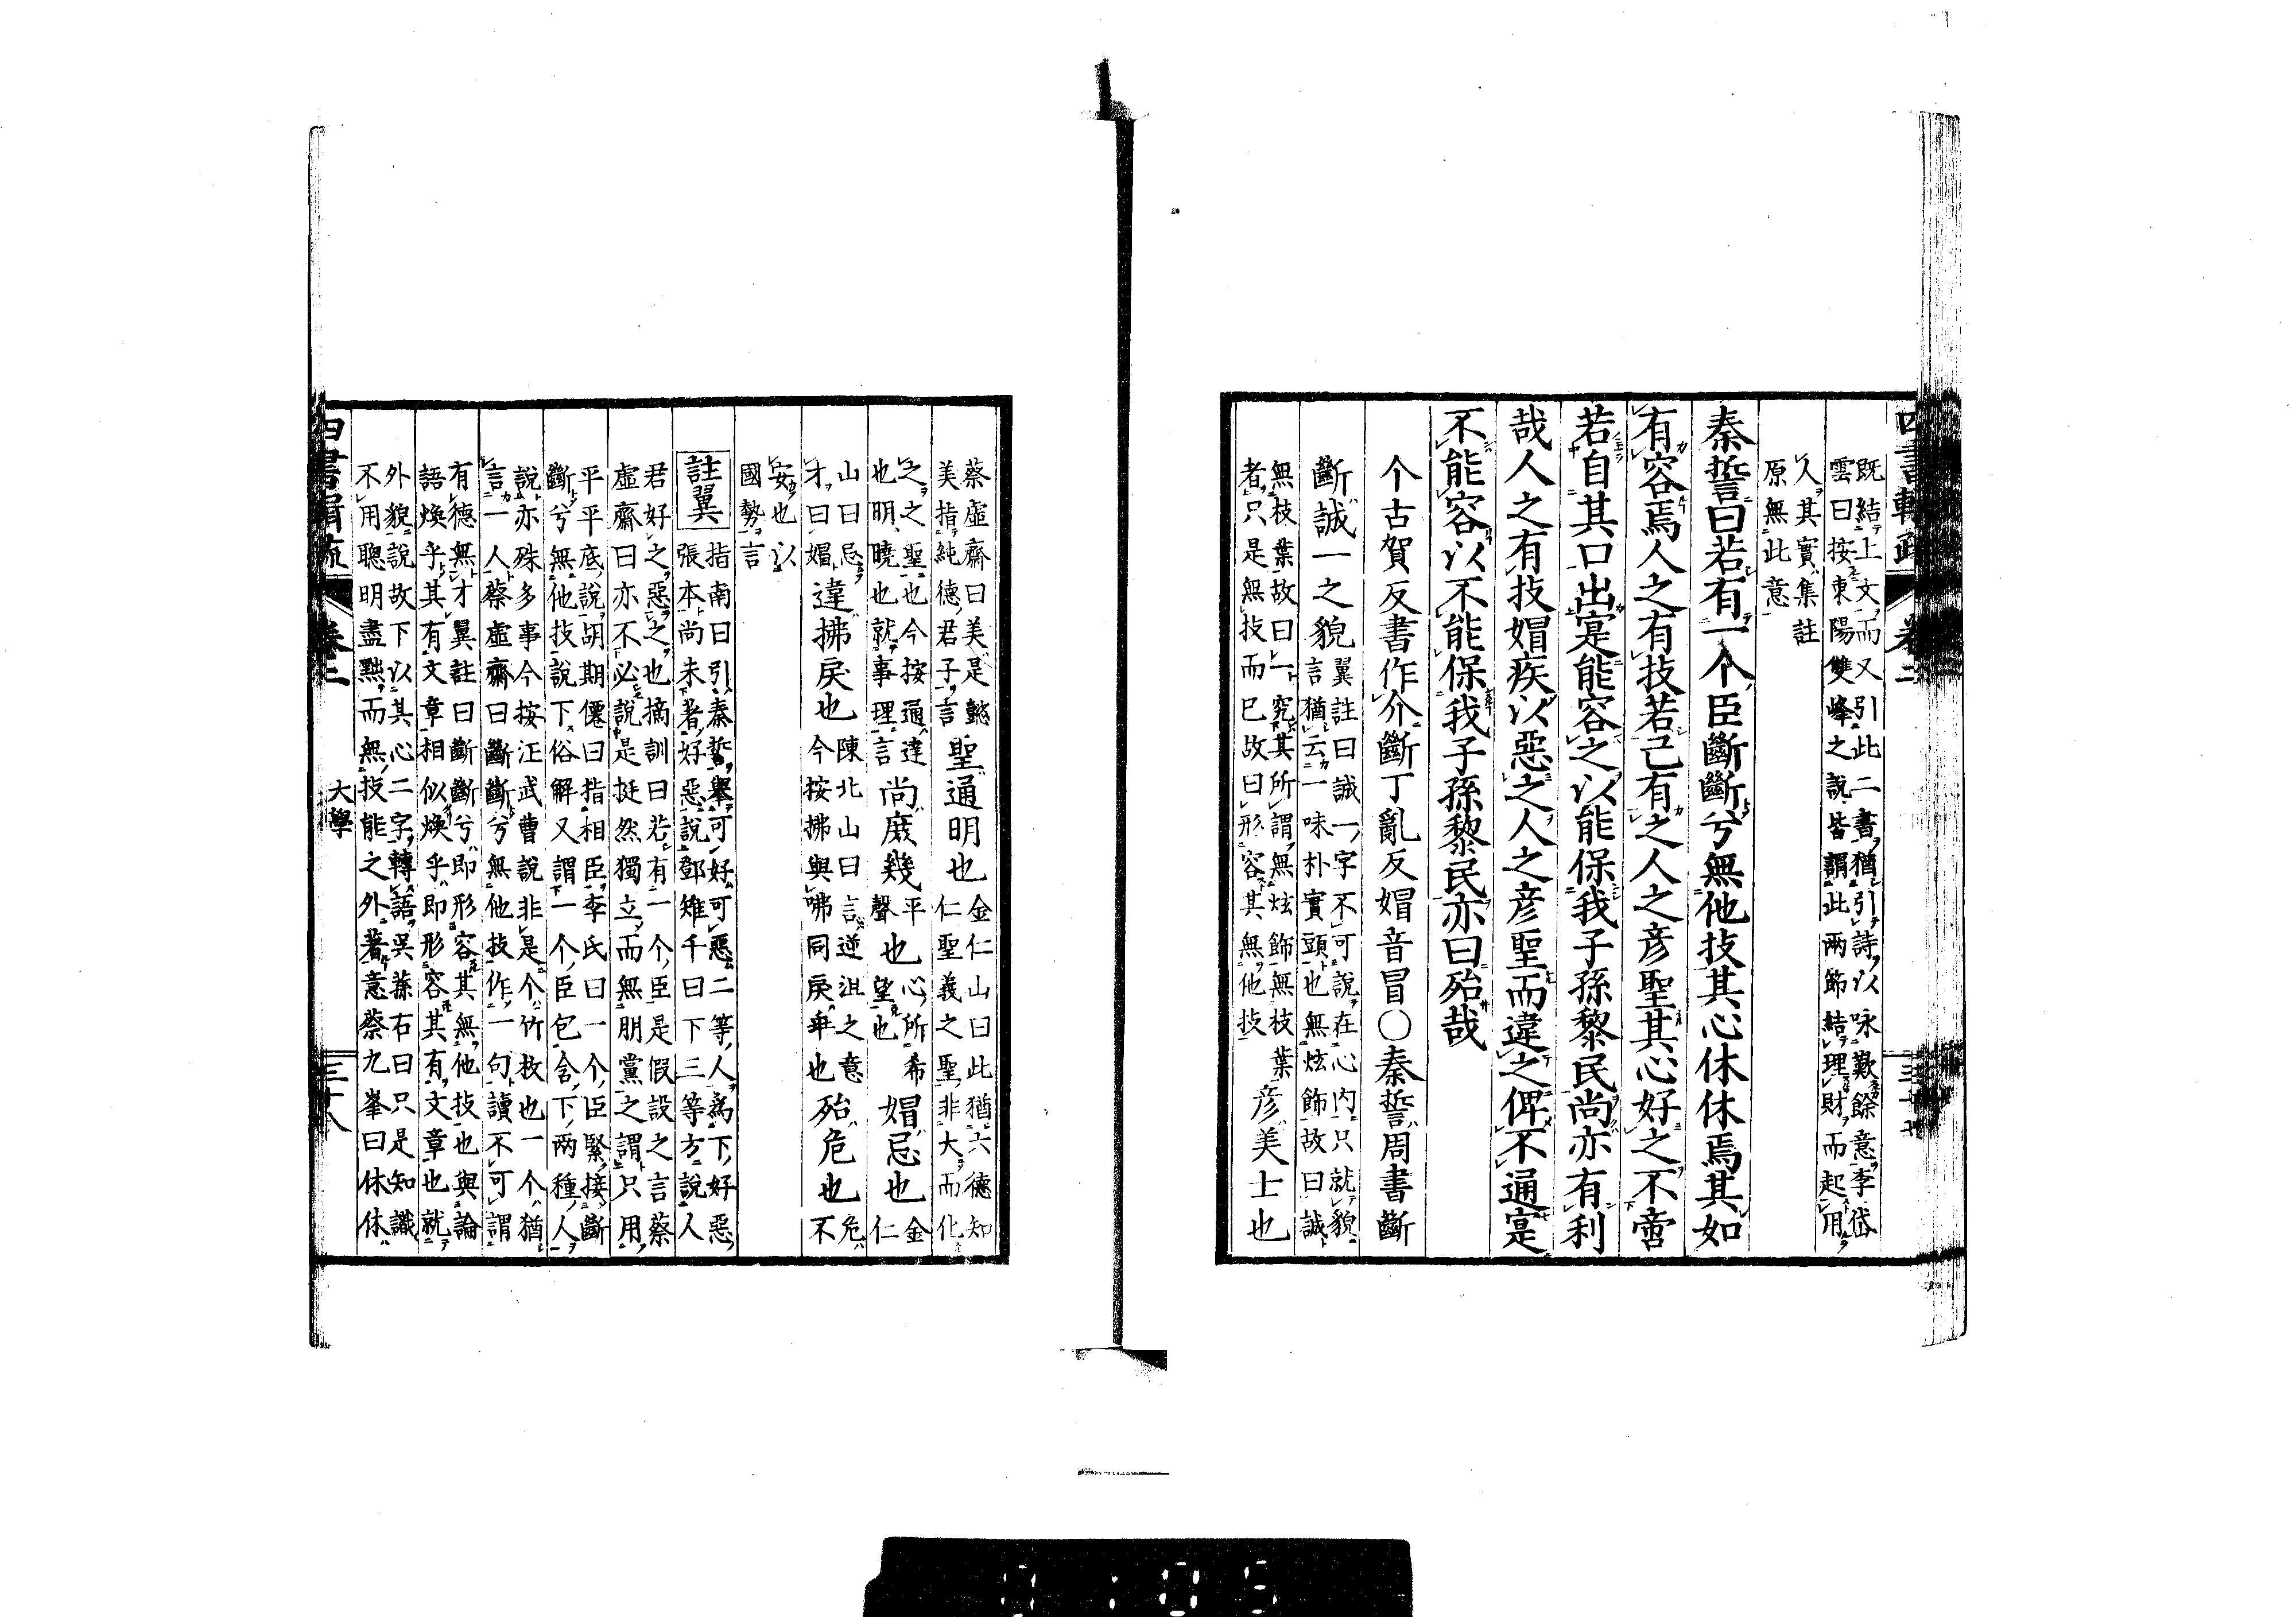 既結上文而又引此二書猶引詩以咏歎餘意李岱
雲曰按東陽雙峰之說皆謂此兩節結理財而起用
人其實集註
原無此意
秦誓曰若有一个臣斷斷兮無他技其心休休焉其如
有容焉人之有技若己有之人之彦聖其心好之不啻
若自其口出寔能容之以能保我子孫黎民尚亦有利
哉人之有技媢疾以惡之人之彦聖而違之俾不通寔
不能容以不能保我子孫黎民亦曰殆哉
个古賀反書作介斷丁亂反媢音冒○秦誓周書斷
斷誠一之貌
翼註曰誠一字不可說在心內只就貌
言猶云一味朴實頭也無炫飾故曰誠
無枝葉故曰一究其所謂無炫飾無枝葉
者只是無技而已故曰形容其無他技
彦美士也
蔡虛齋曰美是懿
美指純德君子言
聖通明也
金仁山曰此猶六德知
仁聖義之聖非大而化
之之聖也今按通達
也明曉也就事理言
尚庶幾
平
聲
也
心所希
望也
媢忌也
金仁
山曰忌
才曰媢
違拂戾也
陳北山曰言逆沮之意
今按拂與咈同戾乖也
殆危也
危不
安也以
國勢言
註翼
指南曰引秦誓舉可好可惡二等人為下好惡
張本尚未著好惡說鄧雉千曰下三等方說人
君好之惡之也摘訓曰若有一个臣是假設之言蔡
虛齋曰亦不必說是挺然獨立而無朋黨之謂只用
平平底說胡期僊曰指相臣李氏曰一个臣緊接斷
斷兮無他技說下俗解又謂一个臣包含下兩種人
說亦殊多事今按汪武曹說非是个竹枚也一个猶
言一人蔡虛齋曰斷斷兮無他技作一句讀不可謂
有德無才翼註曰斷斷兮即形容其無他技也與論
語煥乎其有文章相似煥乎即形容其有文章也就
外貌說故下以其心二字轉語吳蓀右曰只是知識
不用聰明盡黜而無技能之外著意蔡九峯曰休休
大學
三十八